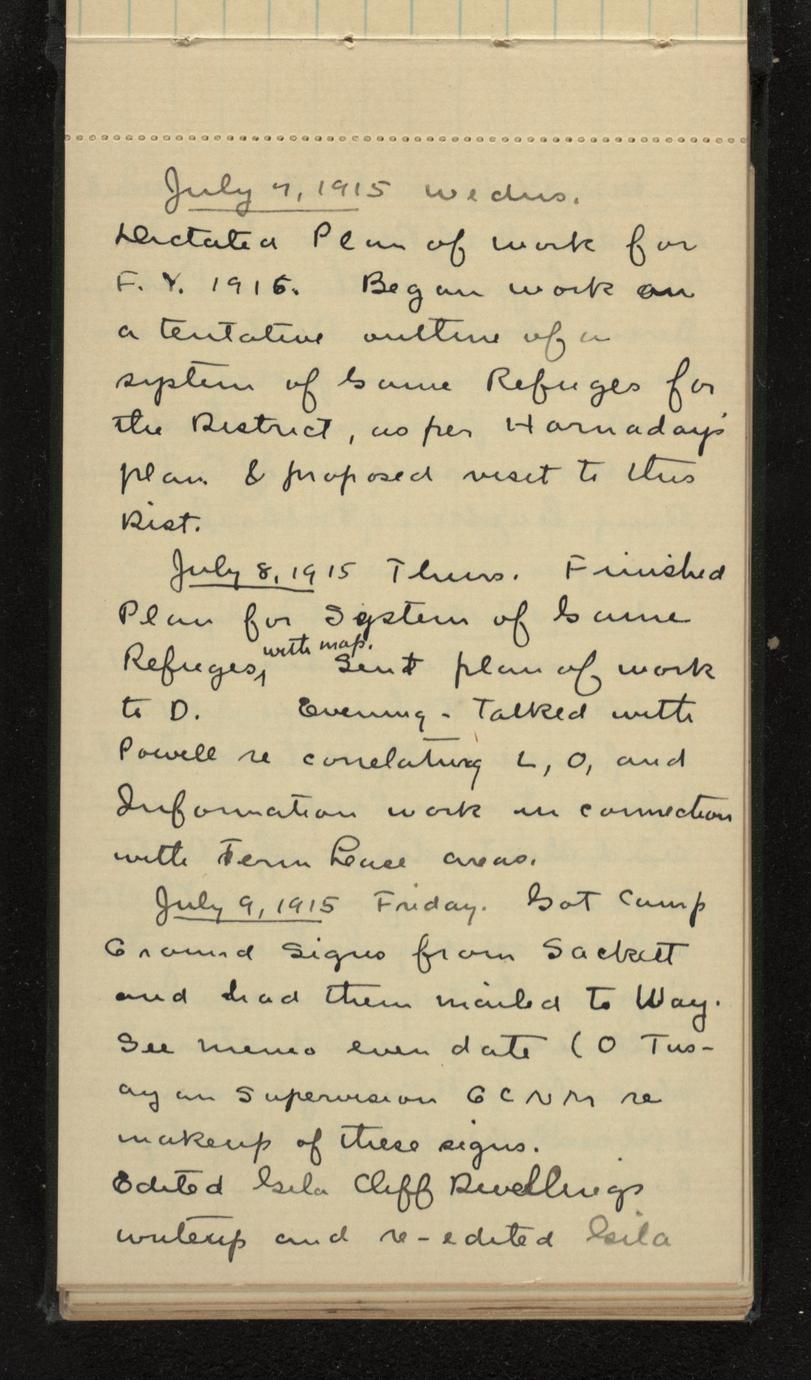 July 7, 1915 Wedns.
Dictated Plan of work for
F. Y. 1916. Began work on
a tentative outline of a
system of Game Refuges for
the District, as per Hornaday's
plan & proposed visit to this
Dist.
July 8, 1915 Thurs. Finished
Plan for System of Game
with map.
Refuges, Sent plan of work
to D. Evening - Talked with
Powell re correlating L, O, and
Information work in connection
with Term Lease areas.
July 9, 1915 Friday. Got Camp
Ground Signs from Sackett
and had them mailed to Way.
See memo even date (O Tus-
ayan Supervision GCNM re
makeup of these signs.
Edited Gila Cliff Dwellings
writeup and re-edited Gila